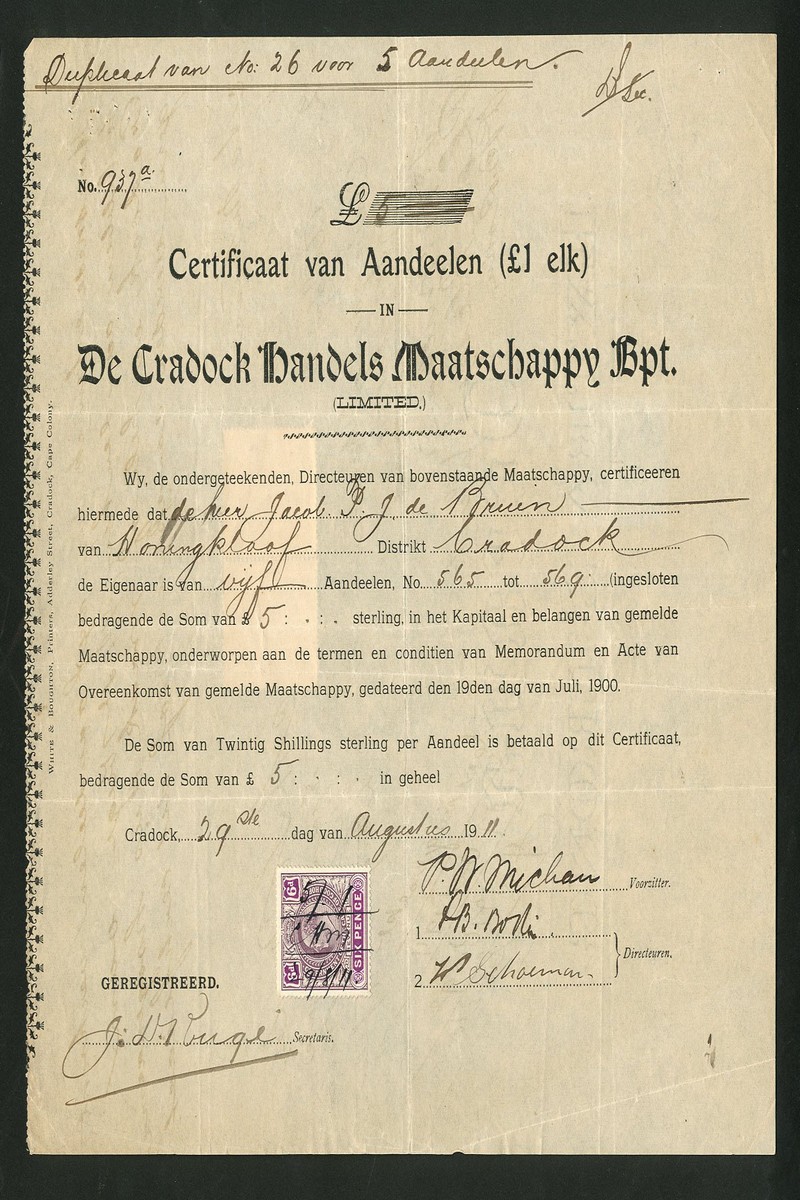 Duplicaat van No: 26 voor 5 Aandeelen.
Sec.
No. 937a.
£ 5
Certificaat van Aandeelen (£1 elk)
IN
De Cradock Handels Maatschappy Bpt.
(LIMITED.)
Wy, de ondergeteekenden, Directeuren van bovenstaande Maatschappy, certificeeren
hiermede dat de heer Jacob P. J. de Bruin
van Honingkloof Distrikt Cradock
de Eigenaar is van vijf Aandeelen, No. 565 tot 569 (ingesloten
bedragende de Som van £ 5 : . : . sterling, in het Kapitaal en belangen van gemelde
Maatschappy, onderworpen aan de termen en conditien van Memorandum en Acte van
Overeenkomst van gemelde Maatschappy, gedateerd den 19den dag van Juli, 1900.
De Som van Twintig Shillings sterling per Aandeel is betaald op dit Certificaat,
bedragende de Som van £ 5 : . : . in geheel
Cradock, 29ste dag van Augustus 1911.
P. W. Michau Voorzitter.
1
2 Schoeman Directeuren.
6d
SIX PENCE
GEREGISTREERD.
J. D. Secretaris.
WHITE & BOUGHTON, Printers, Adderley Street, Cradock, Cape Colony.